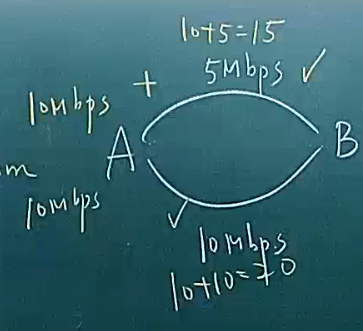 10+5=15
5Mbps ✓
10Mbps +
A B
m
10Mbps
✓
10Mbps
10+10=20